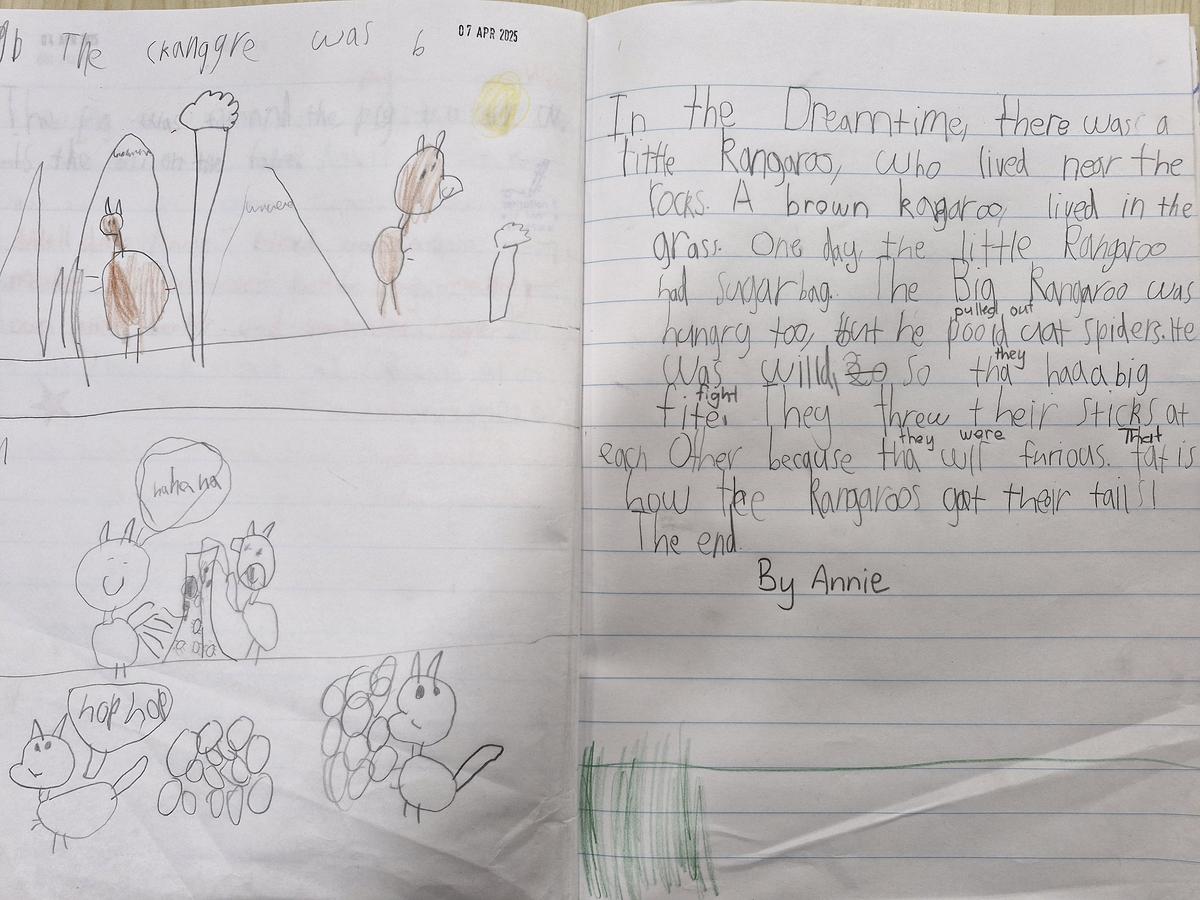 The ckanggre was b
07 APR 2025
hahaha
hop hop
In the Dreamtime, there was a
little Kangaroo, who lived near the
rocks. A brown kangaroo, lived in the
grass. One day, the little Kangaroo
had sugarbag. The Big Kangaroo was
pulled out
hungry too, but he poold uat spiders. He
they
was willd, So tha haddabig
fight
fite. They threw their sticks at
they were That
each Other because tha wir furious. Tat is
how the Kangaroos got their tails!
The end.
By Annie